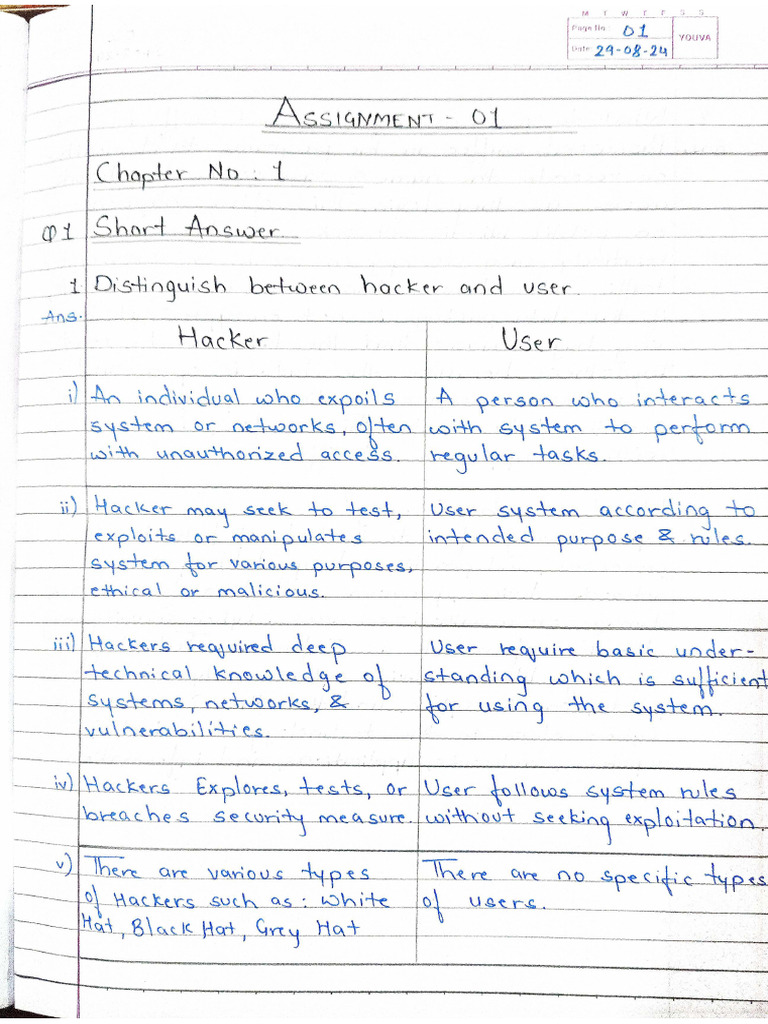 M T W T F S S
Page No 01
YOUVA
Date 29-08-24
ASSIGNMENT - 01
Chapter No : 1
Q1 Short Answer
1 Distinguish between hacker and user.
Ans.
Hacker User
i) An individual who expoils A person who interacts
system or networks, often with system to perform
with unauthorized access. regular tasks.
ii) Hacker may seek to test, User system according to
exploits or manipulates intended purpose & rules.
system for various purposes,
ethical or malicious.
iii) Hackers required deep User require basic under-
technical knowledge of standing which is sufficient
systems, networks, & for using the system.
vulnerabilities.
iv) Hackers Explores, tests, or User follows system rules
breaches security measure. without seeking exploitation.
v) There are various types There are no specific types
of Hackers such as : White of users.
Hat, Black Hat, Grey Hat